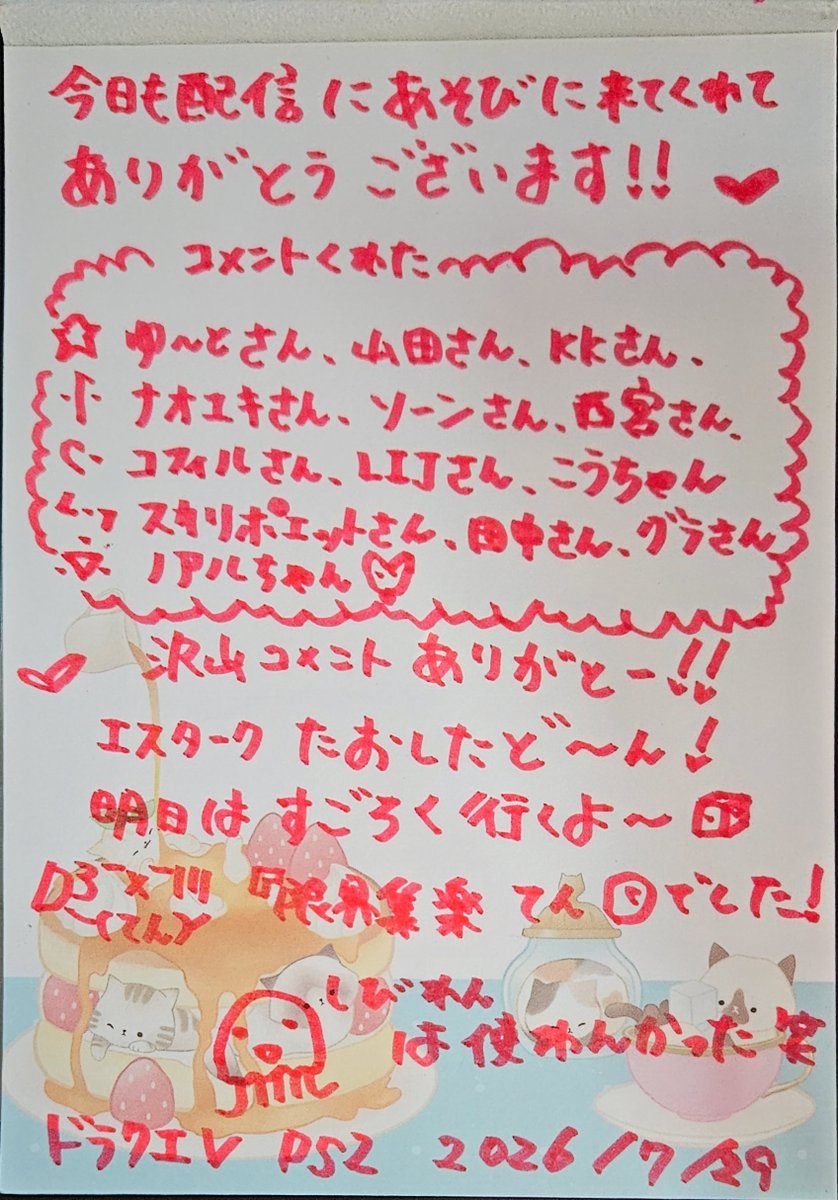 今日も配信にあそびに来てくれて
ありがとうございます!!
コメントくれた
ゆ〜とさん、山田さん、KKさん、
ナオユキさん、ソーンさん、西宮さん、
コフィルさん、LIJさん、こうちゃん
スキリポエットさん、田中さん、グラさん
ノアルちゃん
沢山コメントありがとー!!
エスタークたおしたど〜ん!
明日はすごろく行くよ〜
限界集楽 てん でした!
しびれん
は使わんかった笑
ドラクエV PS2 2026/7/29